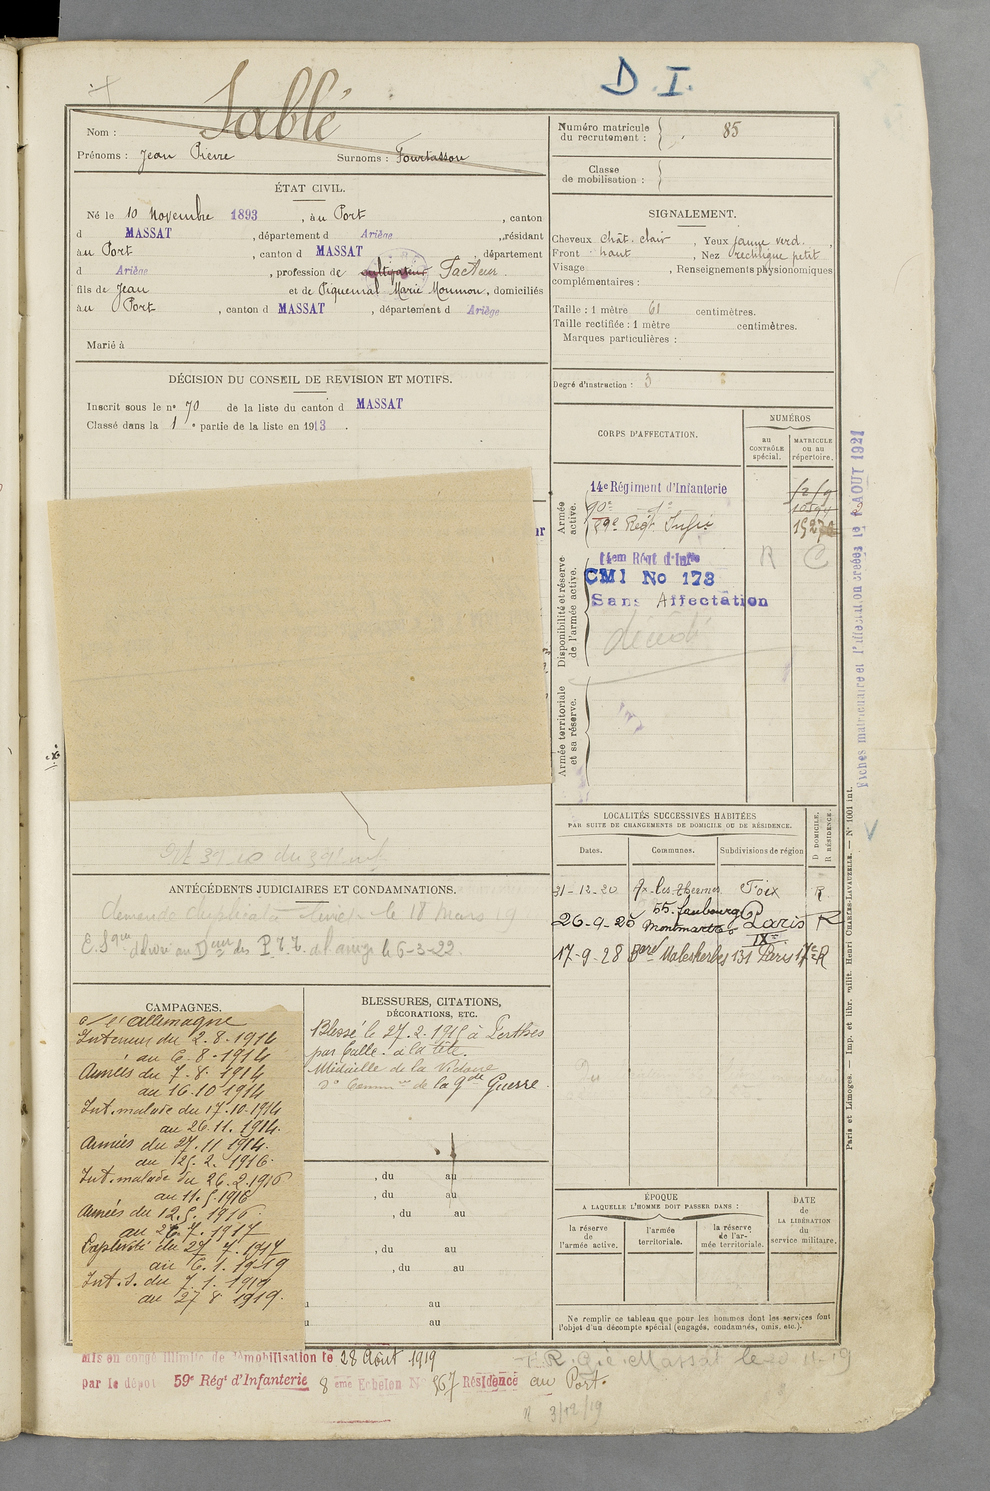 D. I.
Sablé
Nom :
Prénoms : Jean Pierre Surnoms : Fourtassou
ÉTAT CIVIL.
Né le 10 Novembre 1893 , à u Port , canton
d MASSAT , département d Ariège , résidant
à u Port , canton d MASSAT département
d Ariège , profession de cultivateur Facteur.
fils de Jean et de Piquemal Marie , domiciliés
à u Port , canton d MASSAT , département d Ariège
Marié à
DÉCISION DU CONSEIL DE REVISION ET MOTIFS.
Inscrit sous le n° 70 de la liste du canton d MASSAT
Classé dans la 1 e partie de la liste en 1913 .
ANTÉCÉDENTS JUDICIAIRES ET CONDAMNATIONS.
demande duplicata livret le 18 mars 19
CAMPAGNES.
c/ l'allemagne
Intérieur du 2.8.1914
au 6.8.1914
Armées du 7.8.1914
au 16.10.1914
Int. malade du 17.10.1914
au 26.11.1914.
Armées du 27.11.1914.
au 25.2.1916.
Int. malade du 26.2.1916
au 11.5.1916
Armées du 12.5.1916.
au 26.7.1917
Captivité du 27.7.1917
au 6.1.1919
Int. S. du 7.1.1919
au 27 8 1919.
BLESSURES, CITATIONS,
DÉCORATIONS, ETC.
Blessé le 27.2.1915 à Perthes
par balle à la tête.
Médaille de la Victoire
de la Gde Guerre.
, du au
, du au
, du au
, du au
, du au
au
au
Mis en congé illimité de démobilisation le 28 Août 1919
par le dépôt 59e Régt d'Infanterie 8 ème Echelon N° 567 Résidence au Port.
Massat le
3/12/19
Numéro matricule
du recrutement : 85
Classe
de mobilisation :
SIGNALEMENT.
Cheveux chât. clair , Yeux jaune verd.
Front haut , Nez rectiligne petit
Visage , Renseignements physionomiques
complémentaires :
Taille : 1 mètre 61 centimètres.
Taille rectifiée : 1 mètre centimètres.
Marques particulières :
Degré d'instruction : 3
CORPS D'AFFECTATION.
NUMÉROS
AU
CONTRÔLE
spécial.
MATRICULE
ou au
répertoire.
Armée
active.
14e Régiment d'Infanterie
90e
59e Régt Infie
Disponibilité et réserve
de l'armée active.
14em Régt d'Infie
R C
CMI No 178
Sans Affectation
décédé
Armée territoriale
et sa réserve.
Fiches matriculaire et d'affectation créées le AOUT 1921
LOCALITÉS SUCCESSIVES HABITÉES
PAR SUITE DE CHANGEMENTS DE DOMICILE OU DE RÉSIDENCE.
Dates.
Communes.
Subdivisions de région
D DOMICILE.
R RÉSIDENCE.
31-12-20 Ax-les-thermes Foix R
26-9-25 55 faubourg Montmartre Paris IXe R
17-9-28 Bard Malesherbes 131 Paris 17e R
ÉPOQUE
A LAQUELLE L'HOMME DOIT PASSER DANS :
la réserve
de
l'armée active.
l'armée
territoriale.
la réserve
de l'ar-
mée territoriale.
DATE
de
LA LIBÉRATION
du
service militaire.
Ne remplir ce tableau que pour les hommes dont les services font
l'objet d'un décompte spécial (engagés, condamnés, omis, etc.).
Paris et Limoges. — Imp. et libr. milit. Henri CHARLES-LAVAUZELLE. — N° 1001 int.